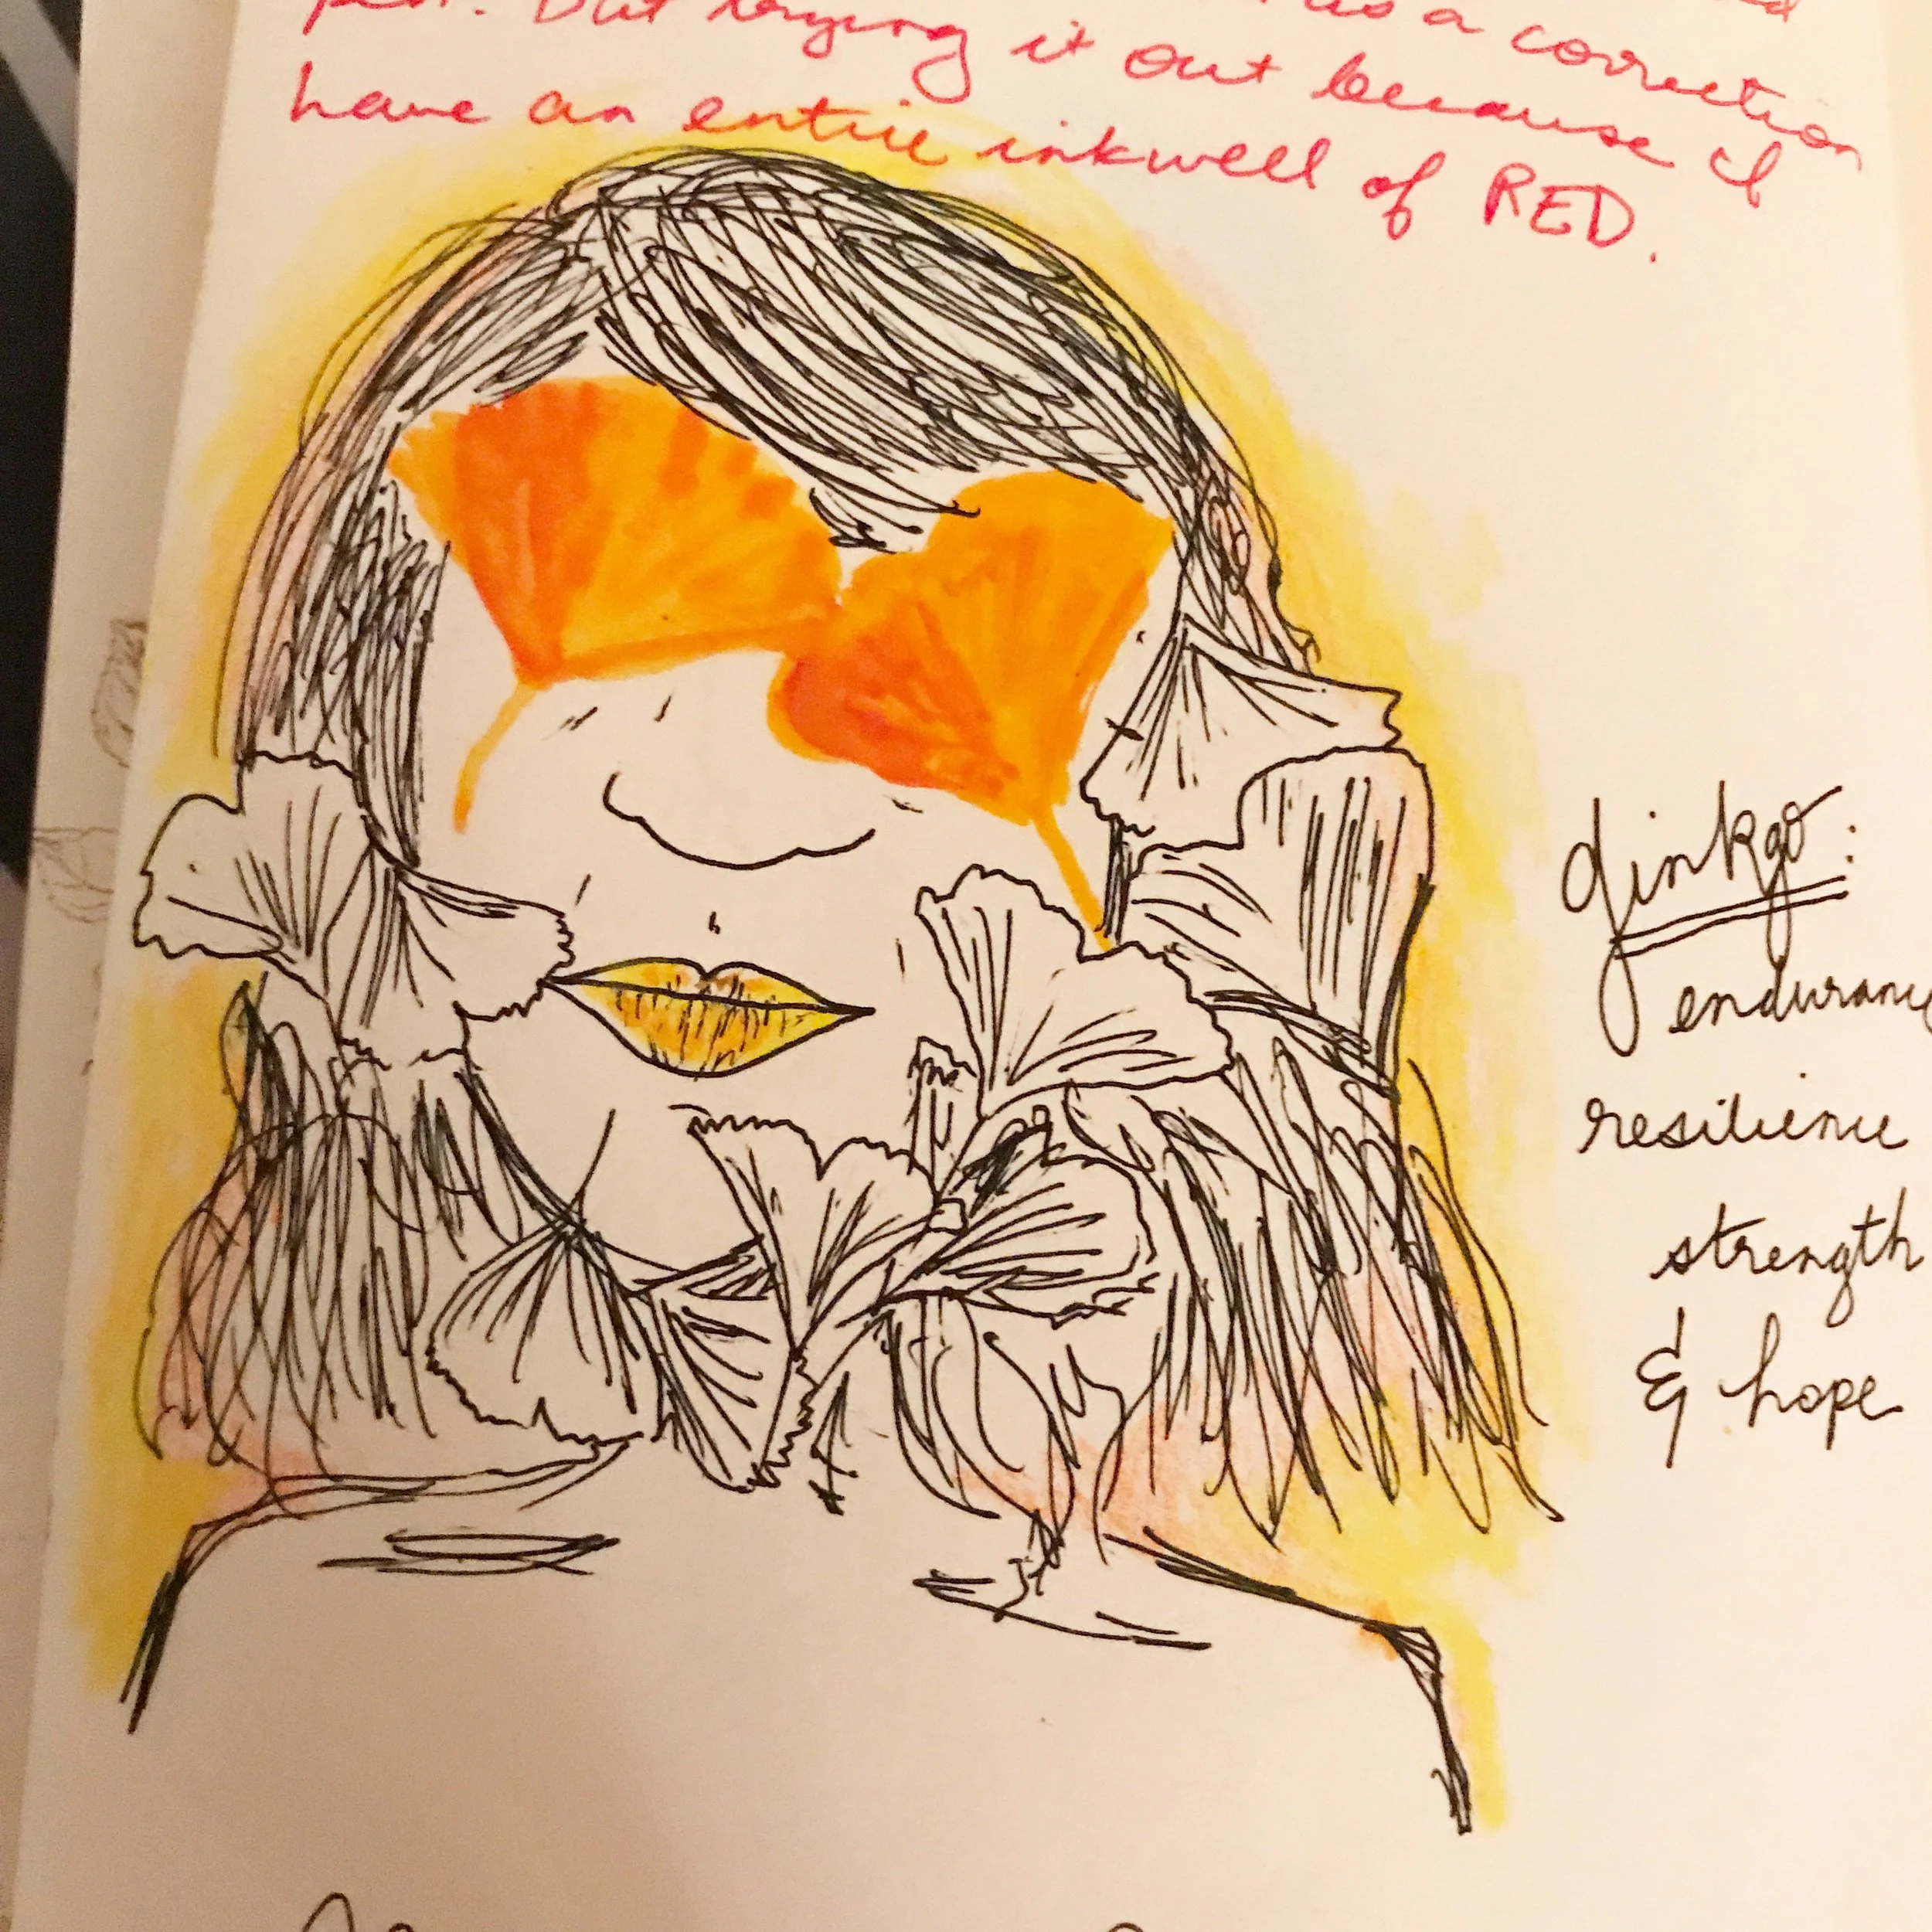 as a correction
pen. But trying it out because I
have an entire inkwell of RED.
ginkgo:
endurance
resilience
strength
& hope